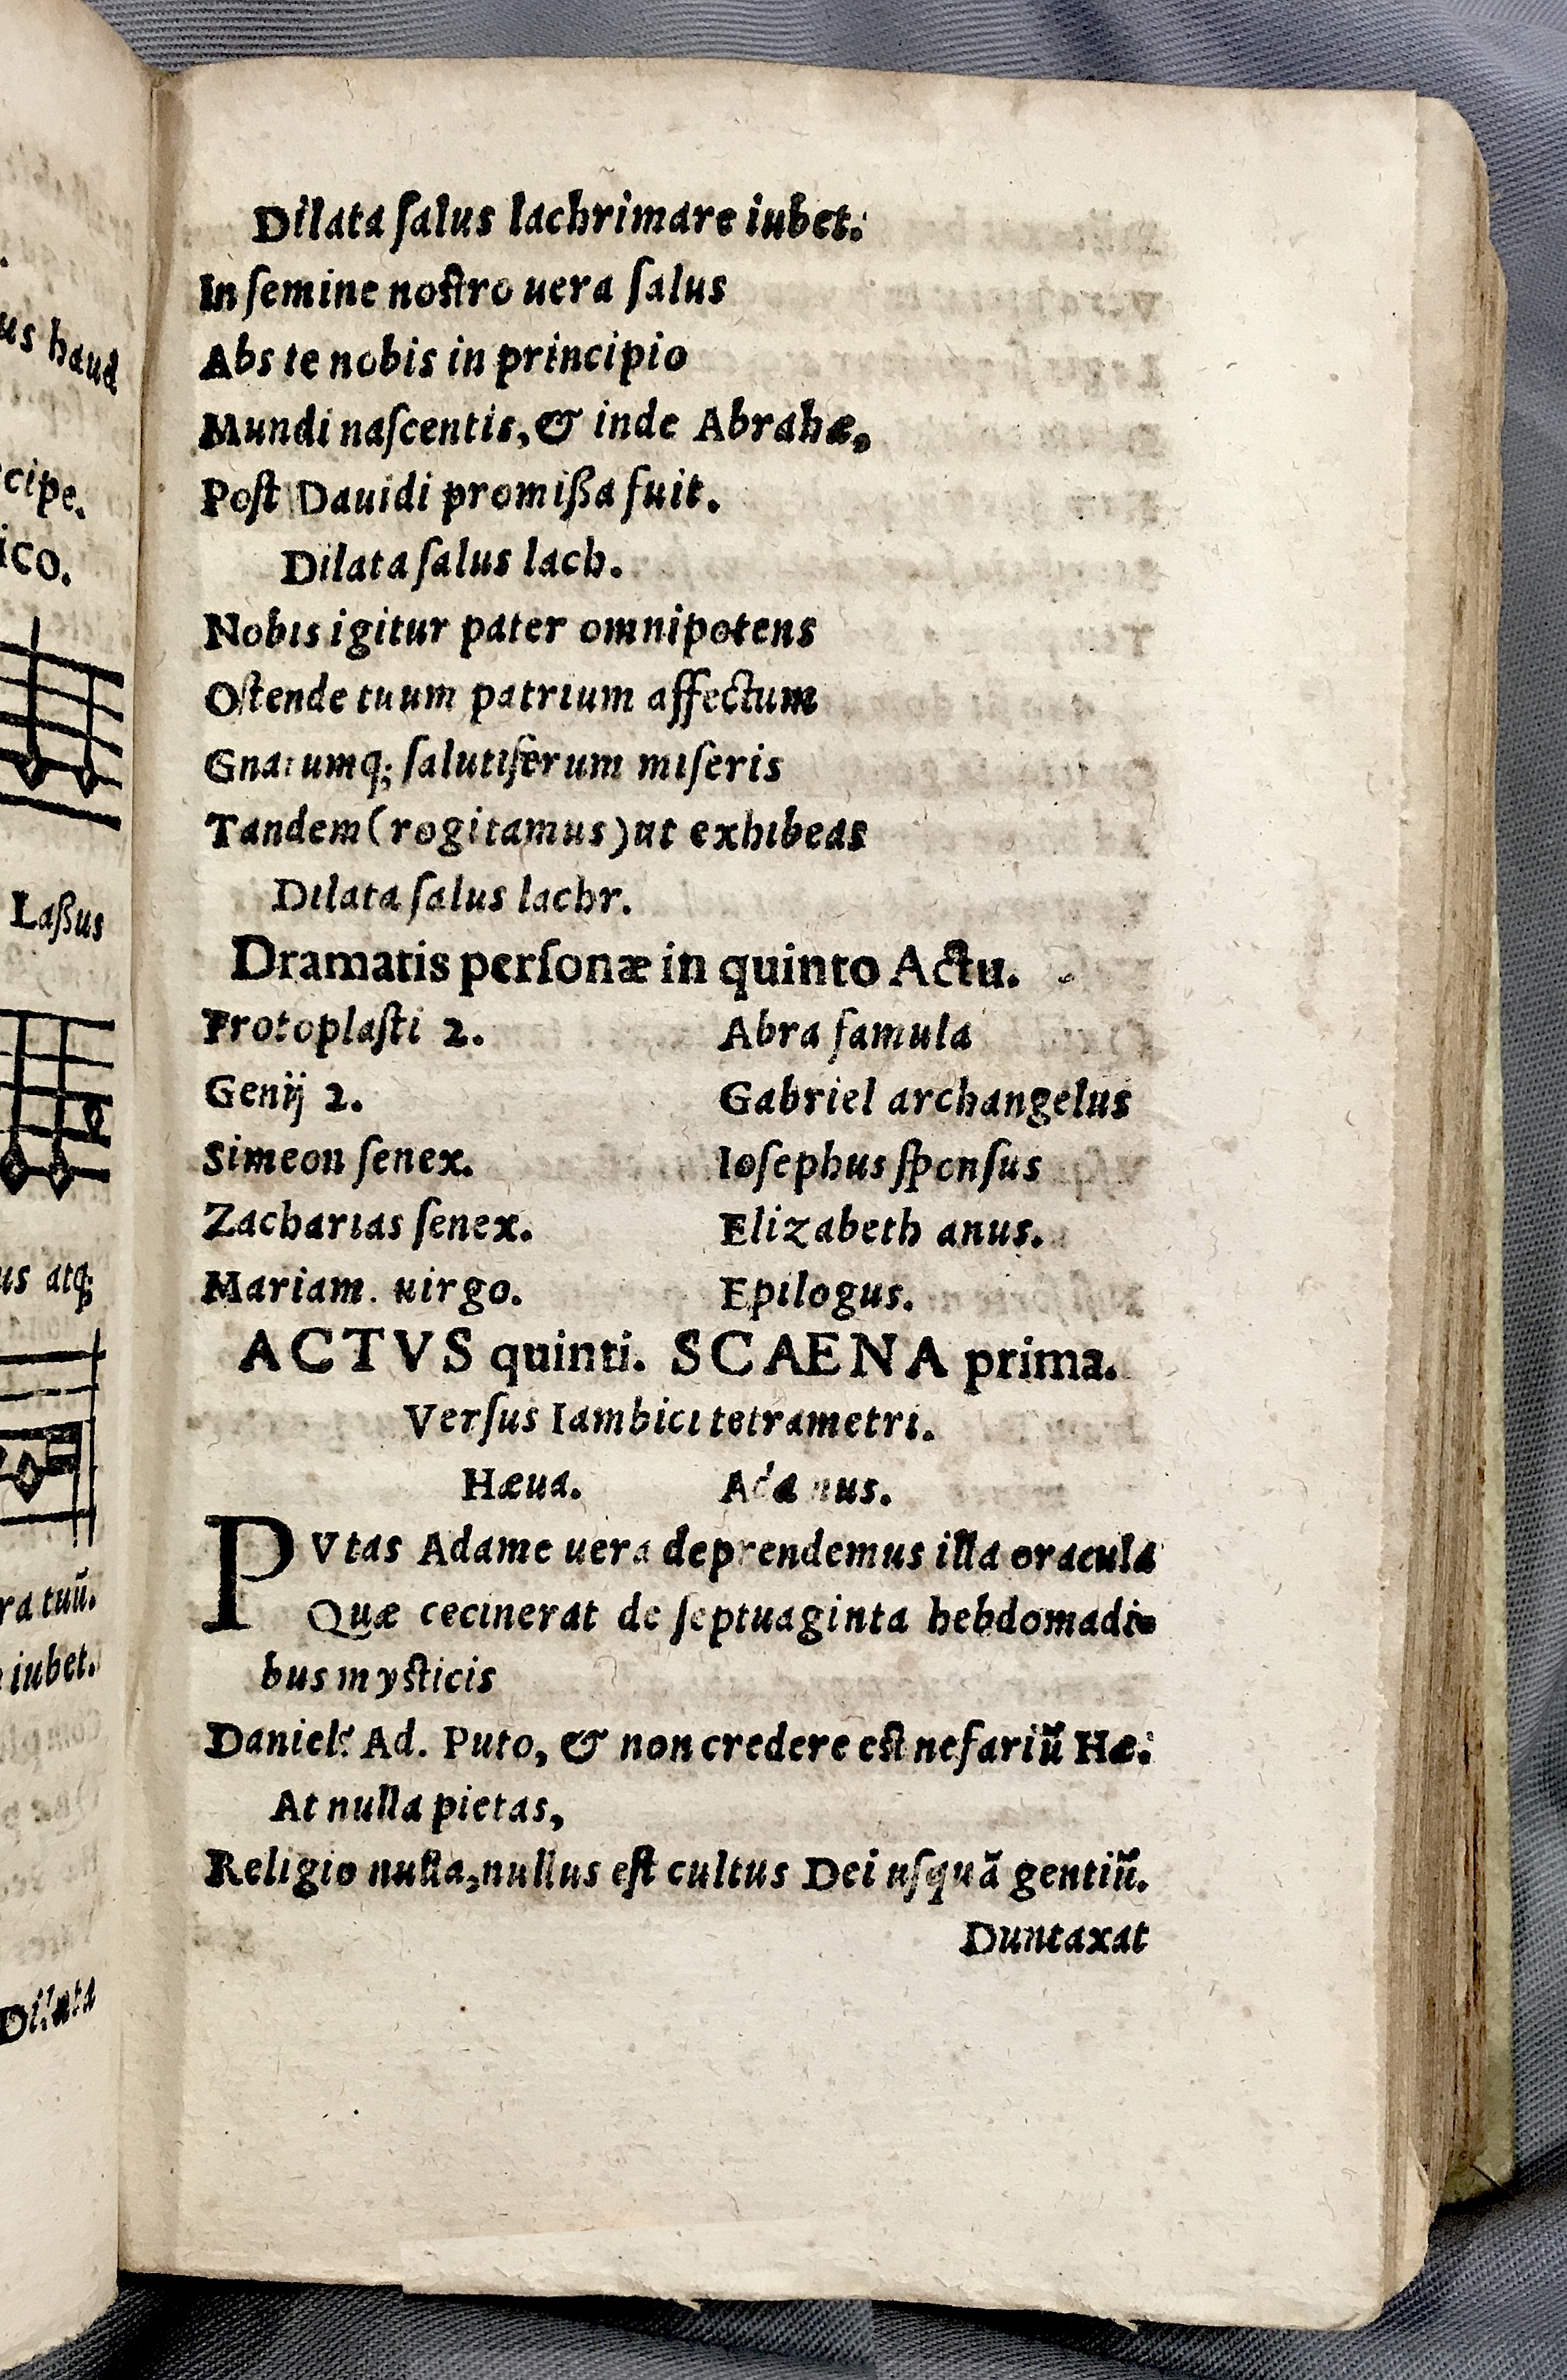 us haud
cipe.
ico.
Laßus
us atq;
ra tuũ.
iubet.
Dilata
Dilata ſalus lachrimare iubet:
In ſemine noſtro uera ſalus
Abs te nobis in principio
Mundi naſcentis, & inde Abrahæ,
Poſt Dauidi promißa fuit.
Dilata ſalus lach.
Nobis igitur pater omnipotens
Oſtende tuum patrium affectum
Gnatumq; ſalutiferum miſeris
Tandem (rogitamus) ut exhibeas
Dilata ſalus lachr.
Dramatis perſonæ in quinto Actu.
Protoplaſti 2. Abra famula
Genij 2. Gabriel archangelus
Simeon ſenex. Ioſephus ſponſus
Zacharias ſenex. Elizabeth anus.
Mariam. uirgo. Epilogus.
ACTVS quinti. SCAENA prima.
Verſus Iambici tetrametri.
Hæua. Adamus.
PVtas Adame uera deprendemus illa oracula
Quæ cecinerat de ſeptuaginta hebdomadi-
bus myſticis
Daniel? Ad. Puto, & non credere eſt nefariũ Hæ:
At nulla pietas,
Religio nulla, nullus eſt cultus Dei uſquã gentiũ.
Duntaxat